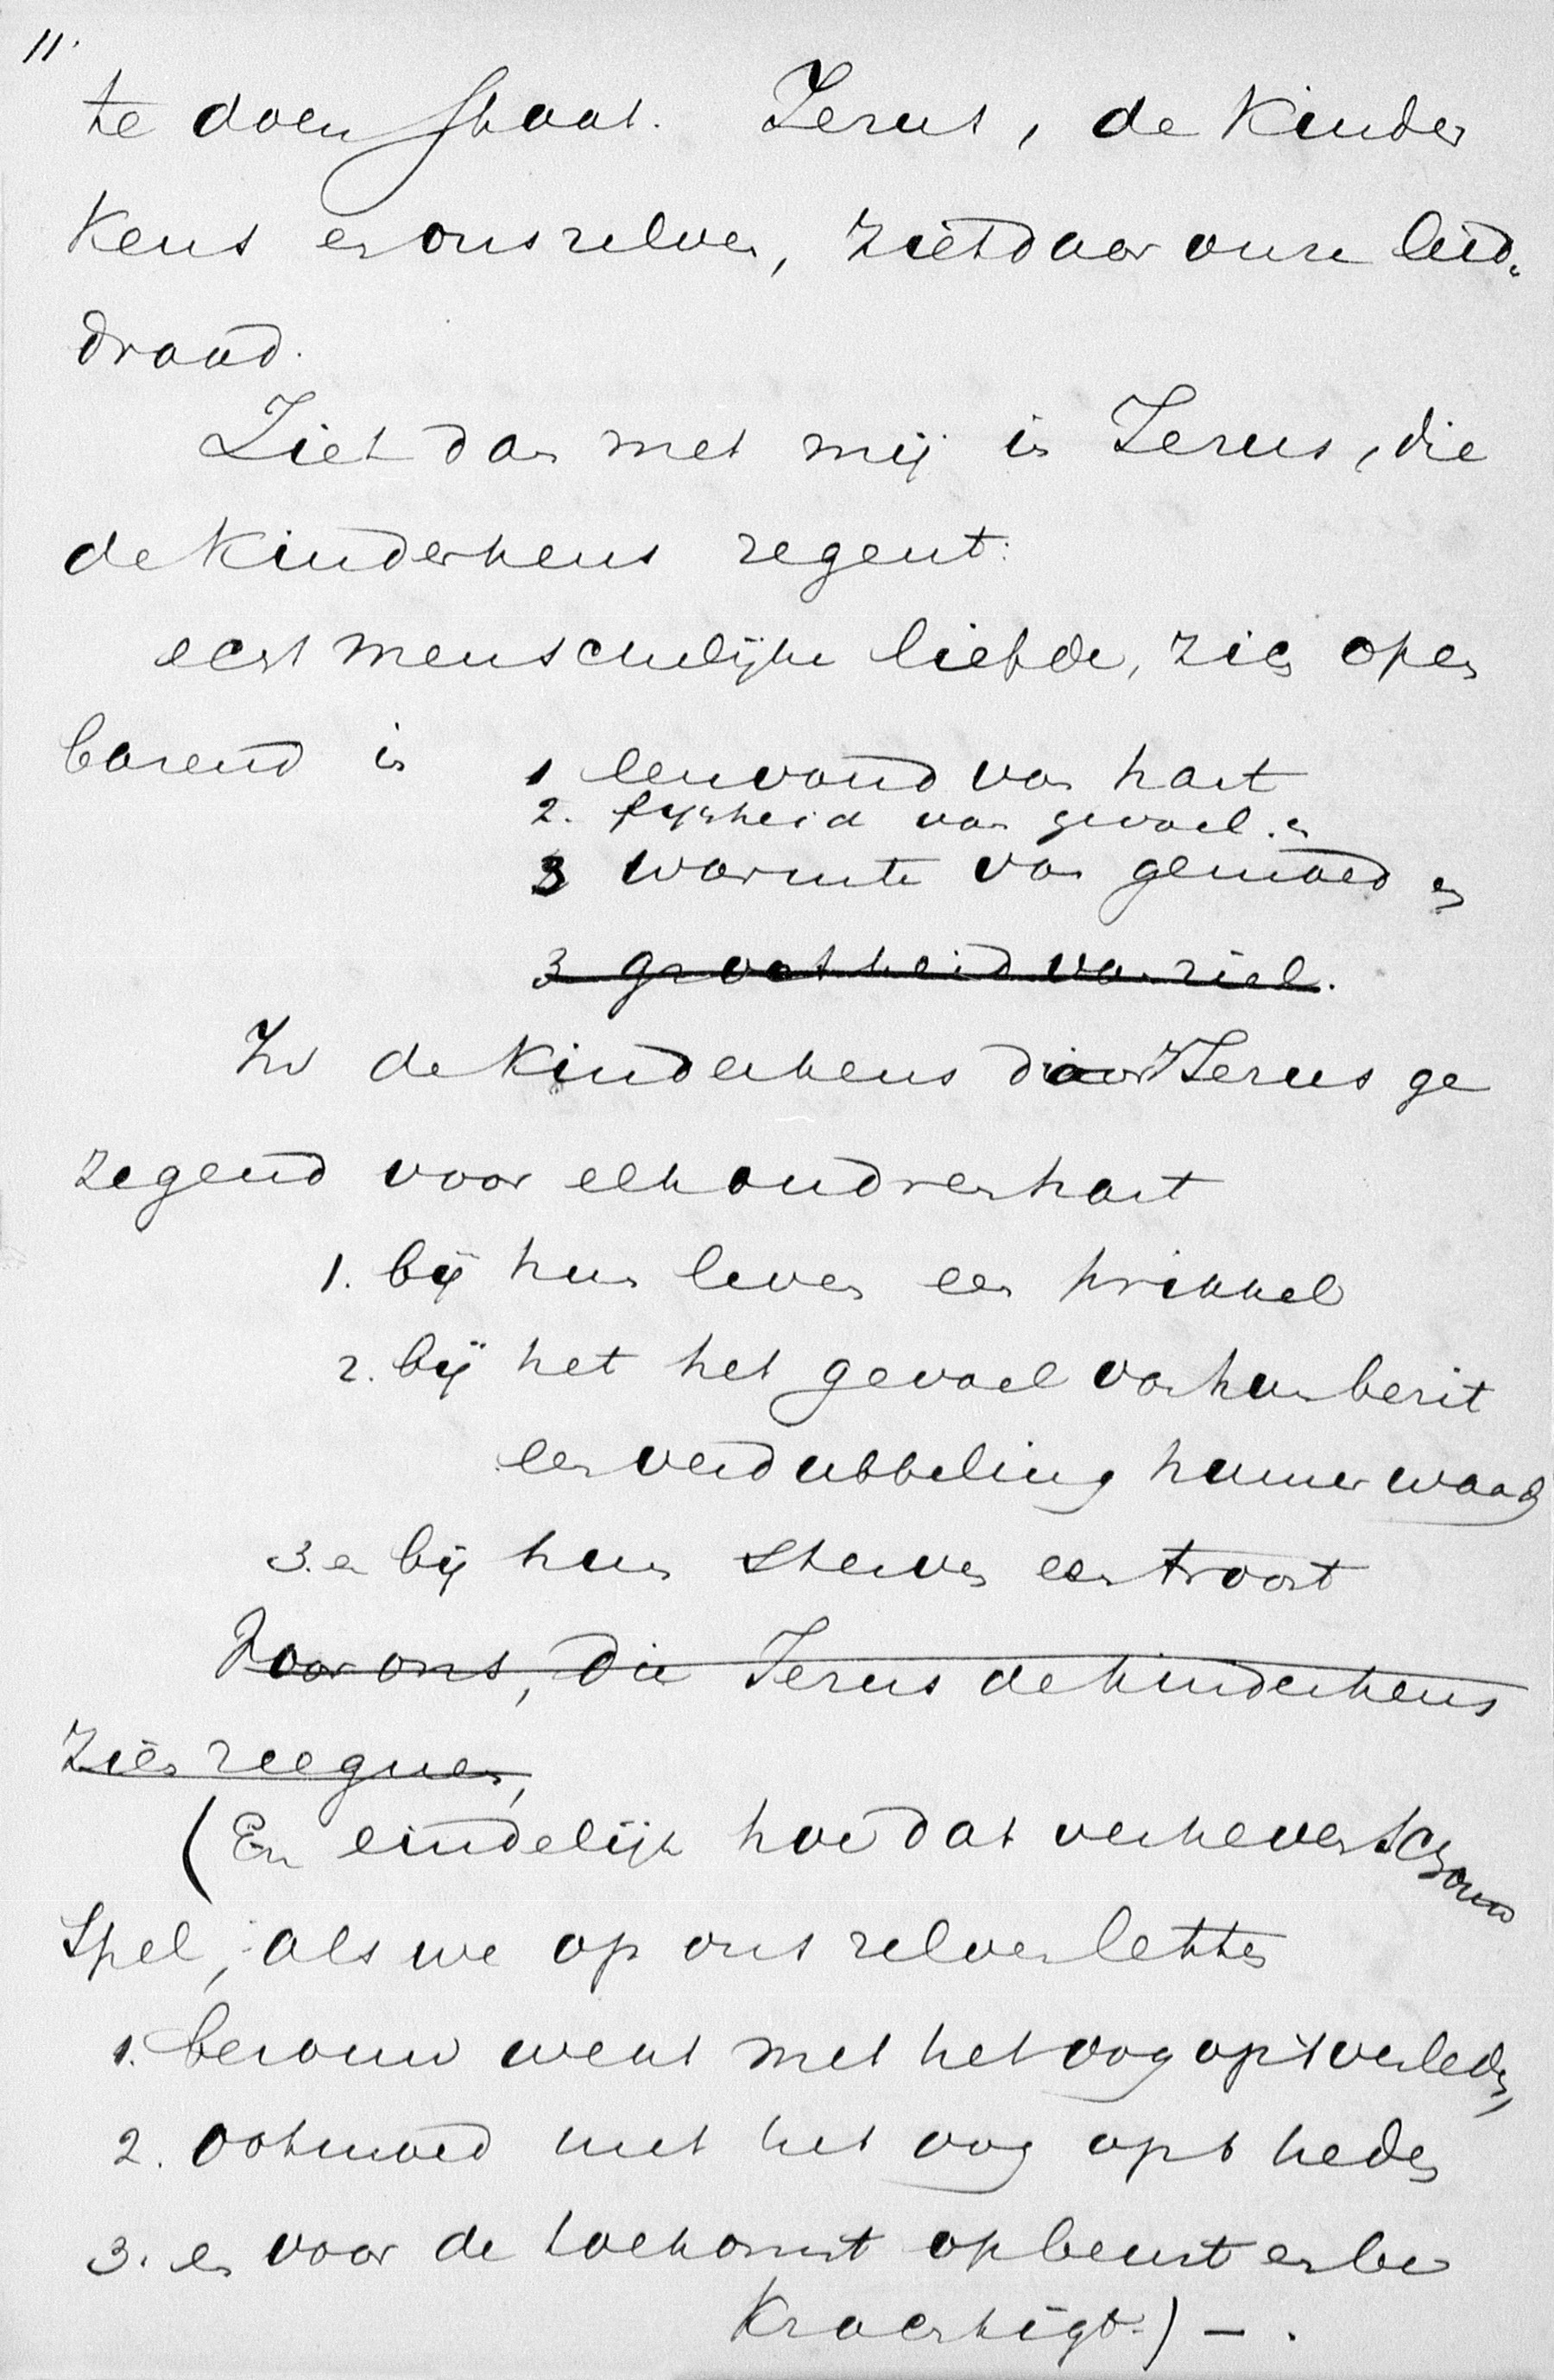 11.
te doen staat. Jezus, de kinder
kens en ons zelven, ziet daar onze leid-
draad.
Ziet dan met mij in Jezus, die
de kinderkens zegent:
echt menschelijke liefde, zich open
barend in 1 eenvoud van hart
2. fijnheid van gevoel. en
3 warmte van gemoed en
3 grootheid van ziel.
In de kinderkens door Jezus ge
zegend voor elk ouderenhart
1. bij hun leven een prikkel
2. bij het het gevoel van hun bezit
een verdubbeling hunner waarde
3. en bij hun sterven een troost
Voor ons, die Jezus de kinderkens
zien zeegnen,
(En eindelijk hoe dat verheven schouw
spel, als we op ons zelven letten
1. berouw wekt met het oog op 't verleden,
2. ootmoed met het oog op 't heden
3. en voor de toekomst opbeurt en be
krachtigt.) - .